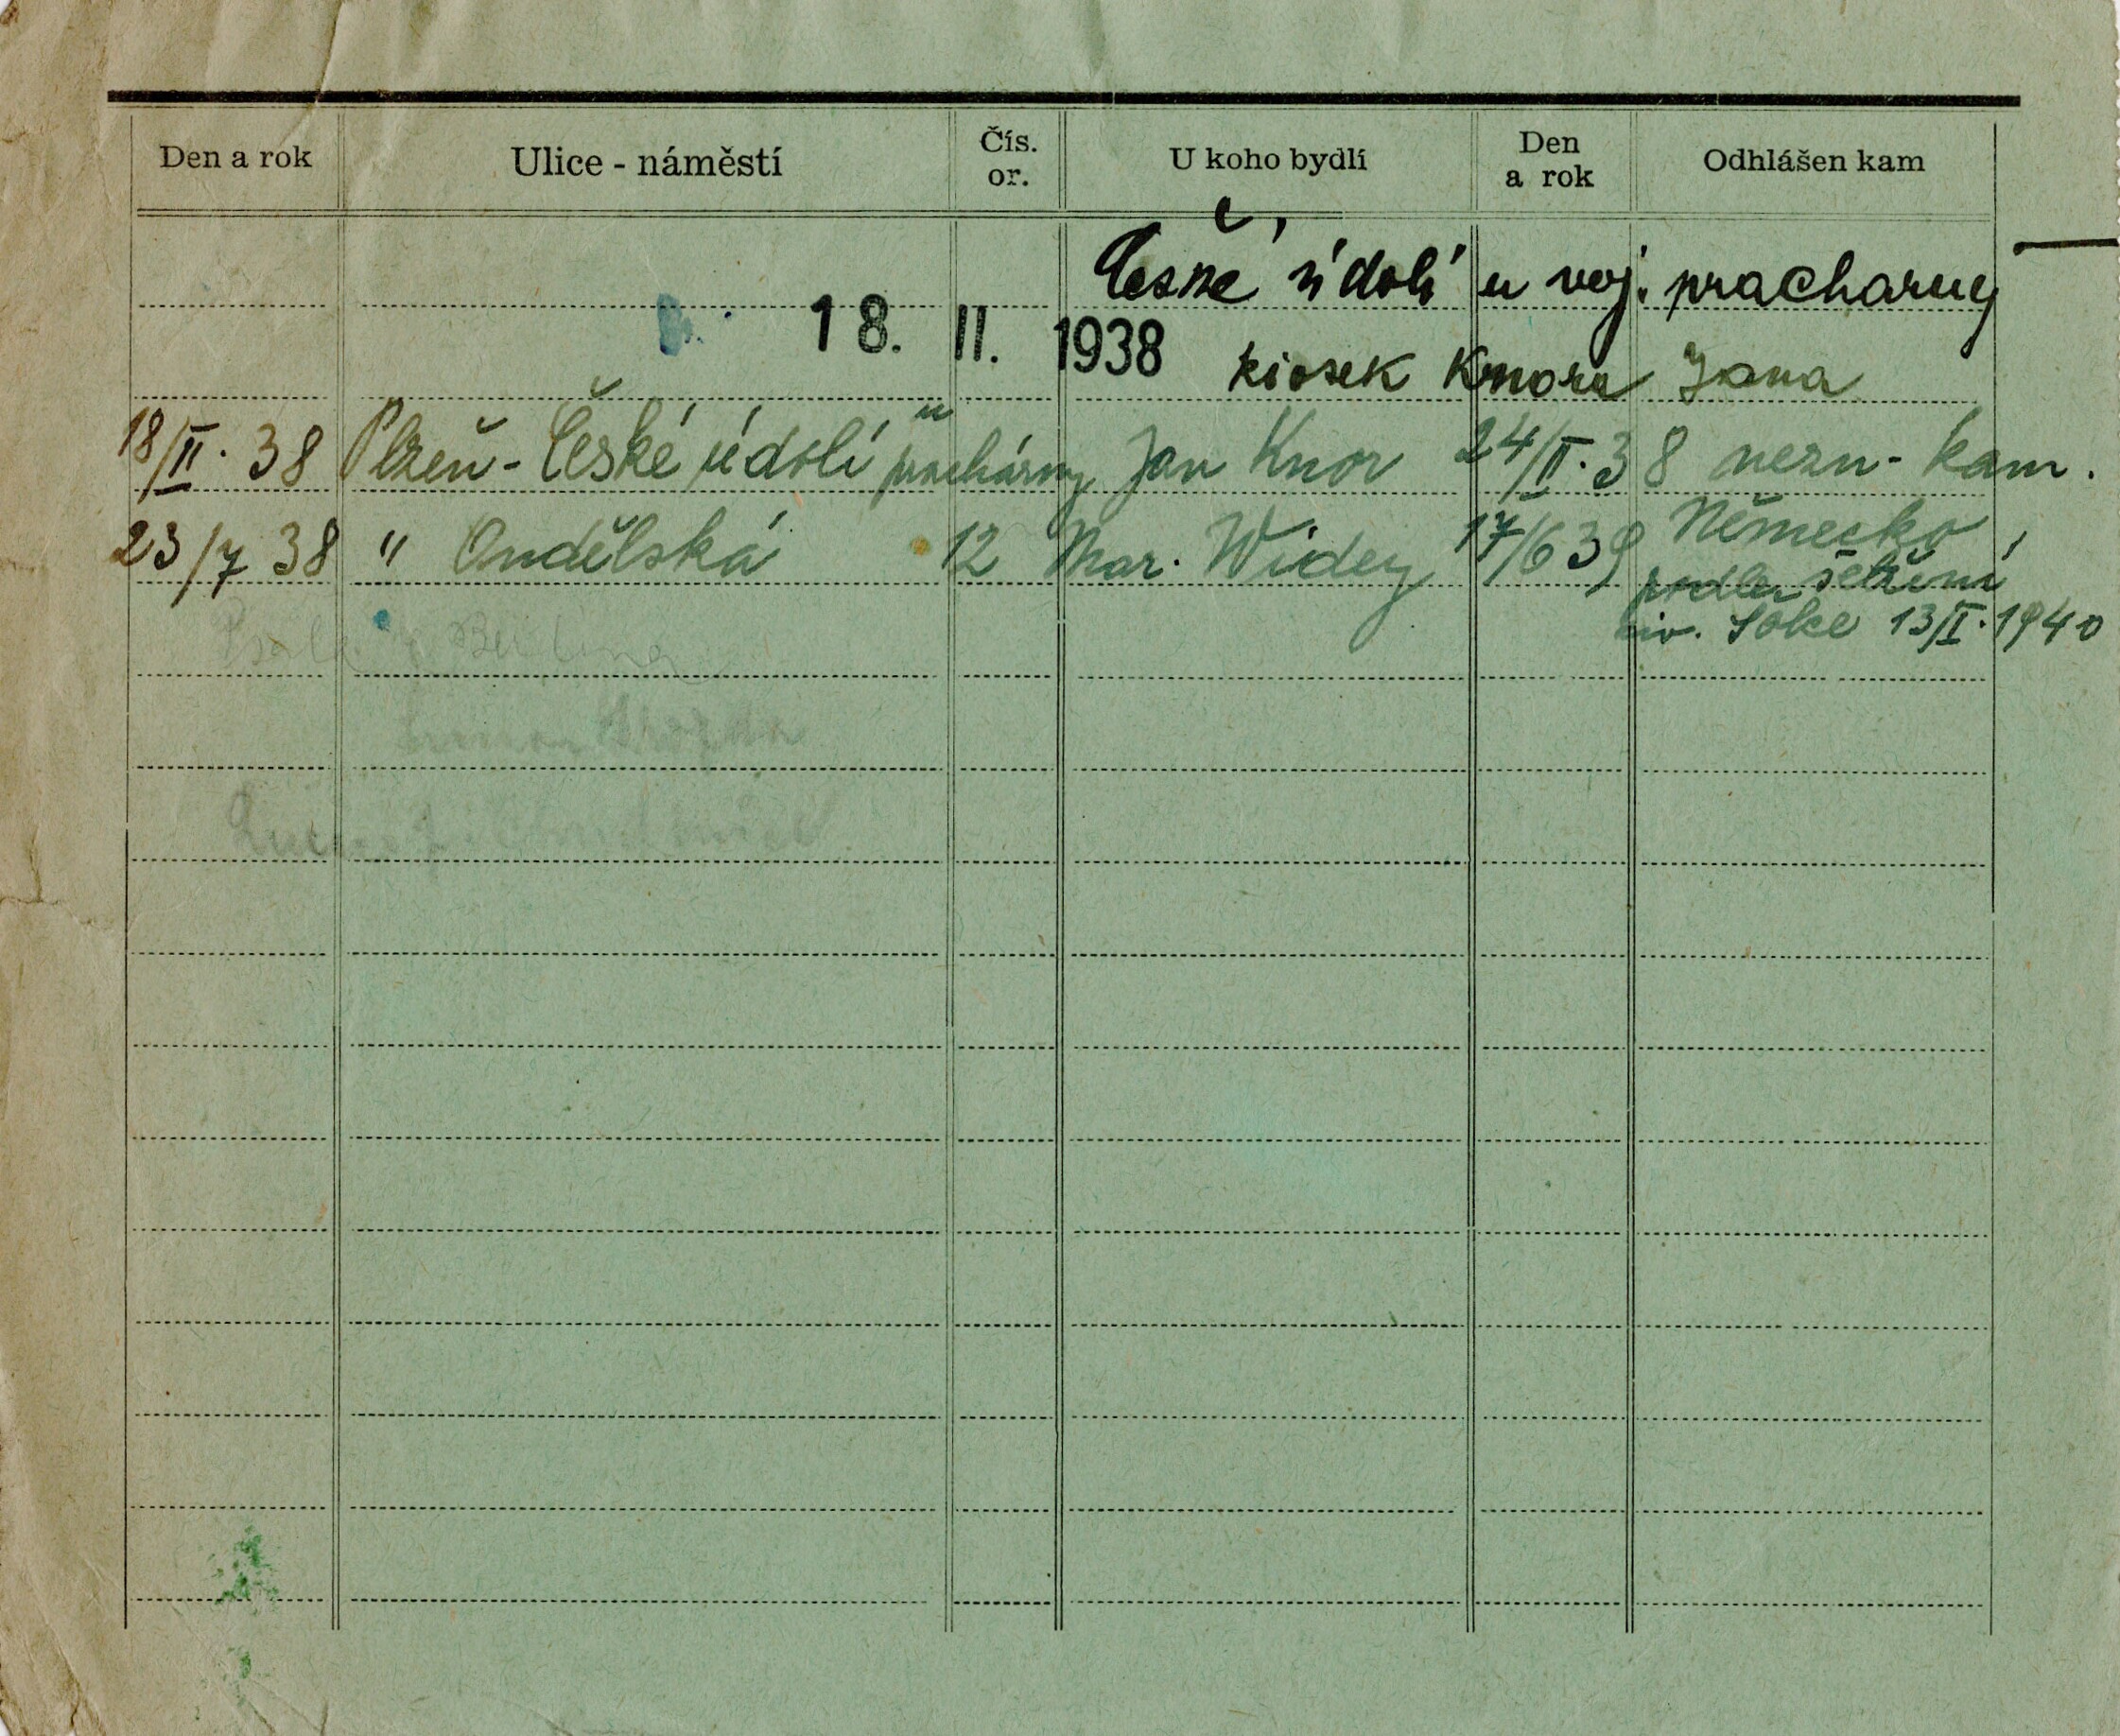 Den a rok Ulice - náměstí Čís. or. U koho bydlí Den a rok Odhlášen kam
České údolí u voj. prachárny
18. II. 1938
kiosek Knora Jana
18/II. 38 Plzeň - České údolí u prachárny Jan Knor 24/II. 38 nezn. kam.
23/7 38 " Andělská 12 Mar. Widey 17/6 39 Německo,
podle šetření
13/II. 1940